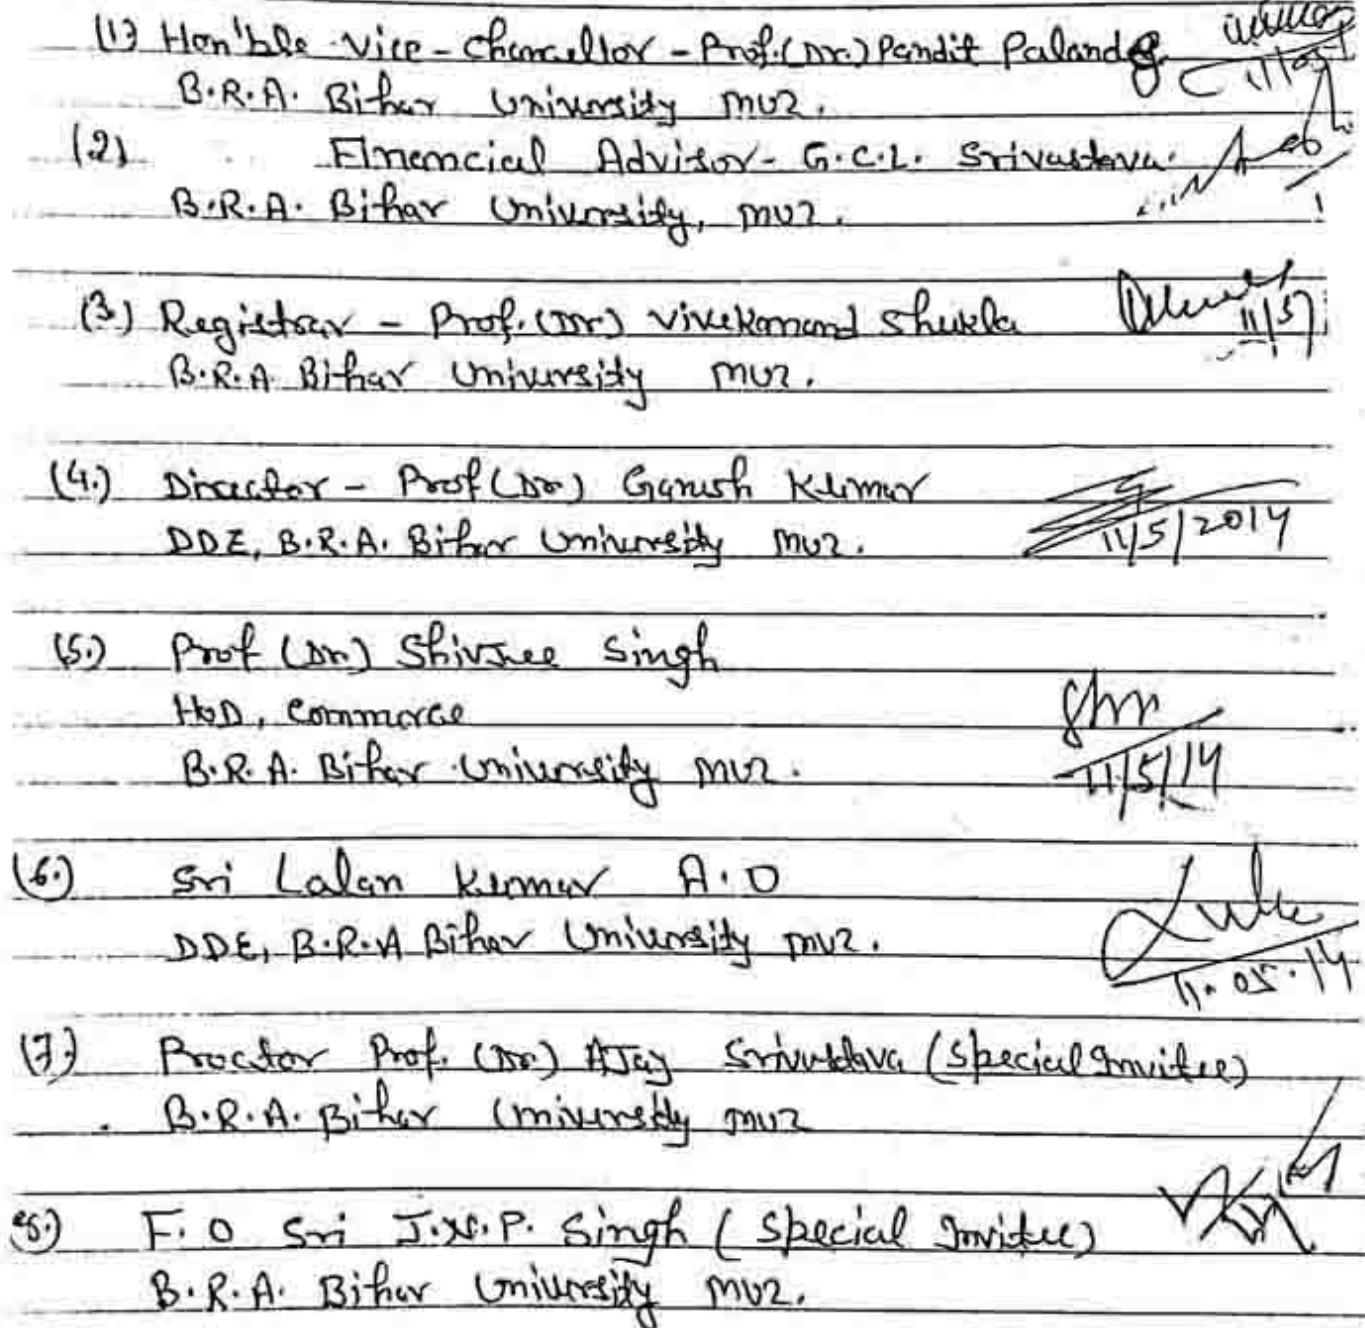 (1) Hon'ble Vice-Chancellor - Prof. (Dr.) Pandit Palande 11/05
B.R.A. Bihar University MUZ.
(2) Financial Advisor - G.C.L. Srivastava
B.R.A. Bihar University, MUZ.
(3.) Registrar - Prof. (Dr) Vivekanand Shukla 11/5
B.R.A Bihar University MUZ.
(4.) Director - Prof (Dr) Ganesh Kumar
DDE, B.R.A. Bihar University MUZ. 11/5/2014
(5.) Prof (Dr.) ShivJee Singh
HOD, Commerce
B.R.A. Bihar University MUZ. 11/5/14
(6.) Sri Lalan Kumar A.O
DDE, B.R.A Bihar University MUZ. 11.05.14
(7.) Proctor Prof. (Dr) AJay Srivastava (Special Invitee)
B.R.A. Bihar University MUZ
(8.) F.O Sri J.N.P. Singh (Special Invitee)
B.R.A. Bihar University MUZ.